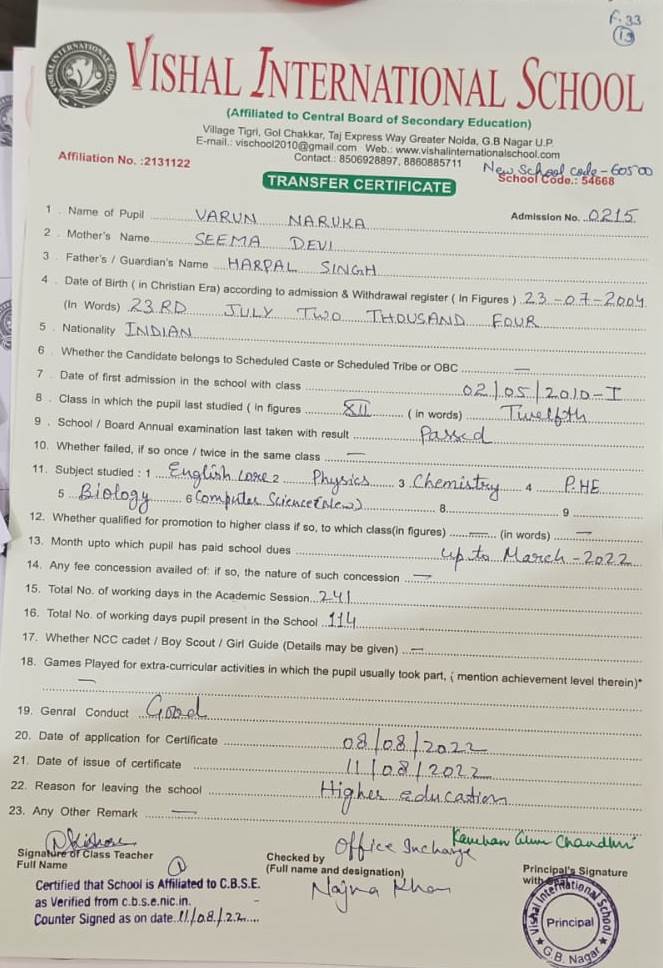 F.33
13
VISHAL INTERNATIONAL SCHOOL
(Affiliated to Central Board of Secondary Education)
Village Tigri, Gol Chakkar, Taj Express Way Greater Noida, G.B Nagar U.P.
E-mail.: vischool2010@gmail.com Web.: www.vishalinternationalschool.com
Contact.: 8506928897, 8860885711
Affiliation No. :2131122
New School code - 60500
School Code.: 54668
TRANSFER CERTIFICATE
1 . Name of Pupil VARUN NARUKA Admission No. 0215
2 . Mother's Name SEEMA DEVI
3 . Father's / Guardian's Name HARPAL SINGH
4 . Date of Birth ( in Christian Era) according to admission & Withdrawal register ( In Figures ) 23-07-2004
(In Words) 23RD JULY TWO THOUSAND FOUR
5 . Nationality INDIAN
6 . Whether the Candidate belongs to Scheduled Caste or Scheduled Tribe or OBC —
7 . Date of first admission in the school with class 02/05/2010-I
8 . Class in which the pupil last studied ( in figures XII ( in words) Twelfth
9 . School / Board Annual examination last taken with result Passed
10. Whether failed, if so once / twice in the same class —
11. Subject studied : 1 English Core 2 Physics 3 Chemistry 4 P.HE
5 Biology 6 Computer Science (New) 8 9
12. Whether qualified for promotion to higher class if so, to which class(in figures) (in words) —
13. Month upto which pupil has paid school dues up to March-2022
14. Any fee concession availed of: if so, the nature of such concession —
15. Total No. of working days in the Academic Session 241
16. Total No. of working days pupil present in the School 114
17. Whether NCC cadet / Boy Scout / Girl Guide (Details may be given) —
18. Games Played for extra-curricular activities in which the pupil usually took part, ( mention achievement level therein)*
—
19. Genral Conduct Good
20. Date of application for Certificate 08/08/2022
21. Date of issue of certificate 11/08/2022
22. Reason for leaving the school Higher education
23. Any Other Remark —
Signature of Class Teacher
Full Name
Checked by Office Incharge
(Full name and designation)
Najma Khan
Principal's Signature
with
Certified that School is Affiliated to C.B.S.E.
as Verified from c.b.s.e.nic.in.
Counter Signed as on date 11/08/22
Vishal International School
Principal
G.B. Nagar